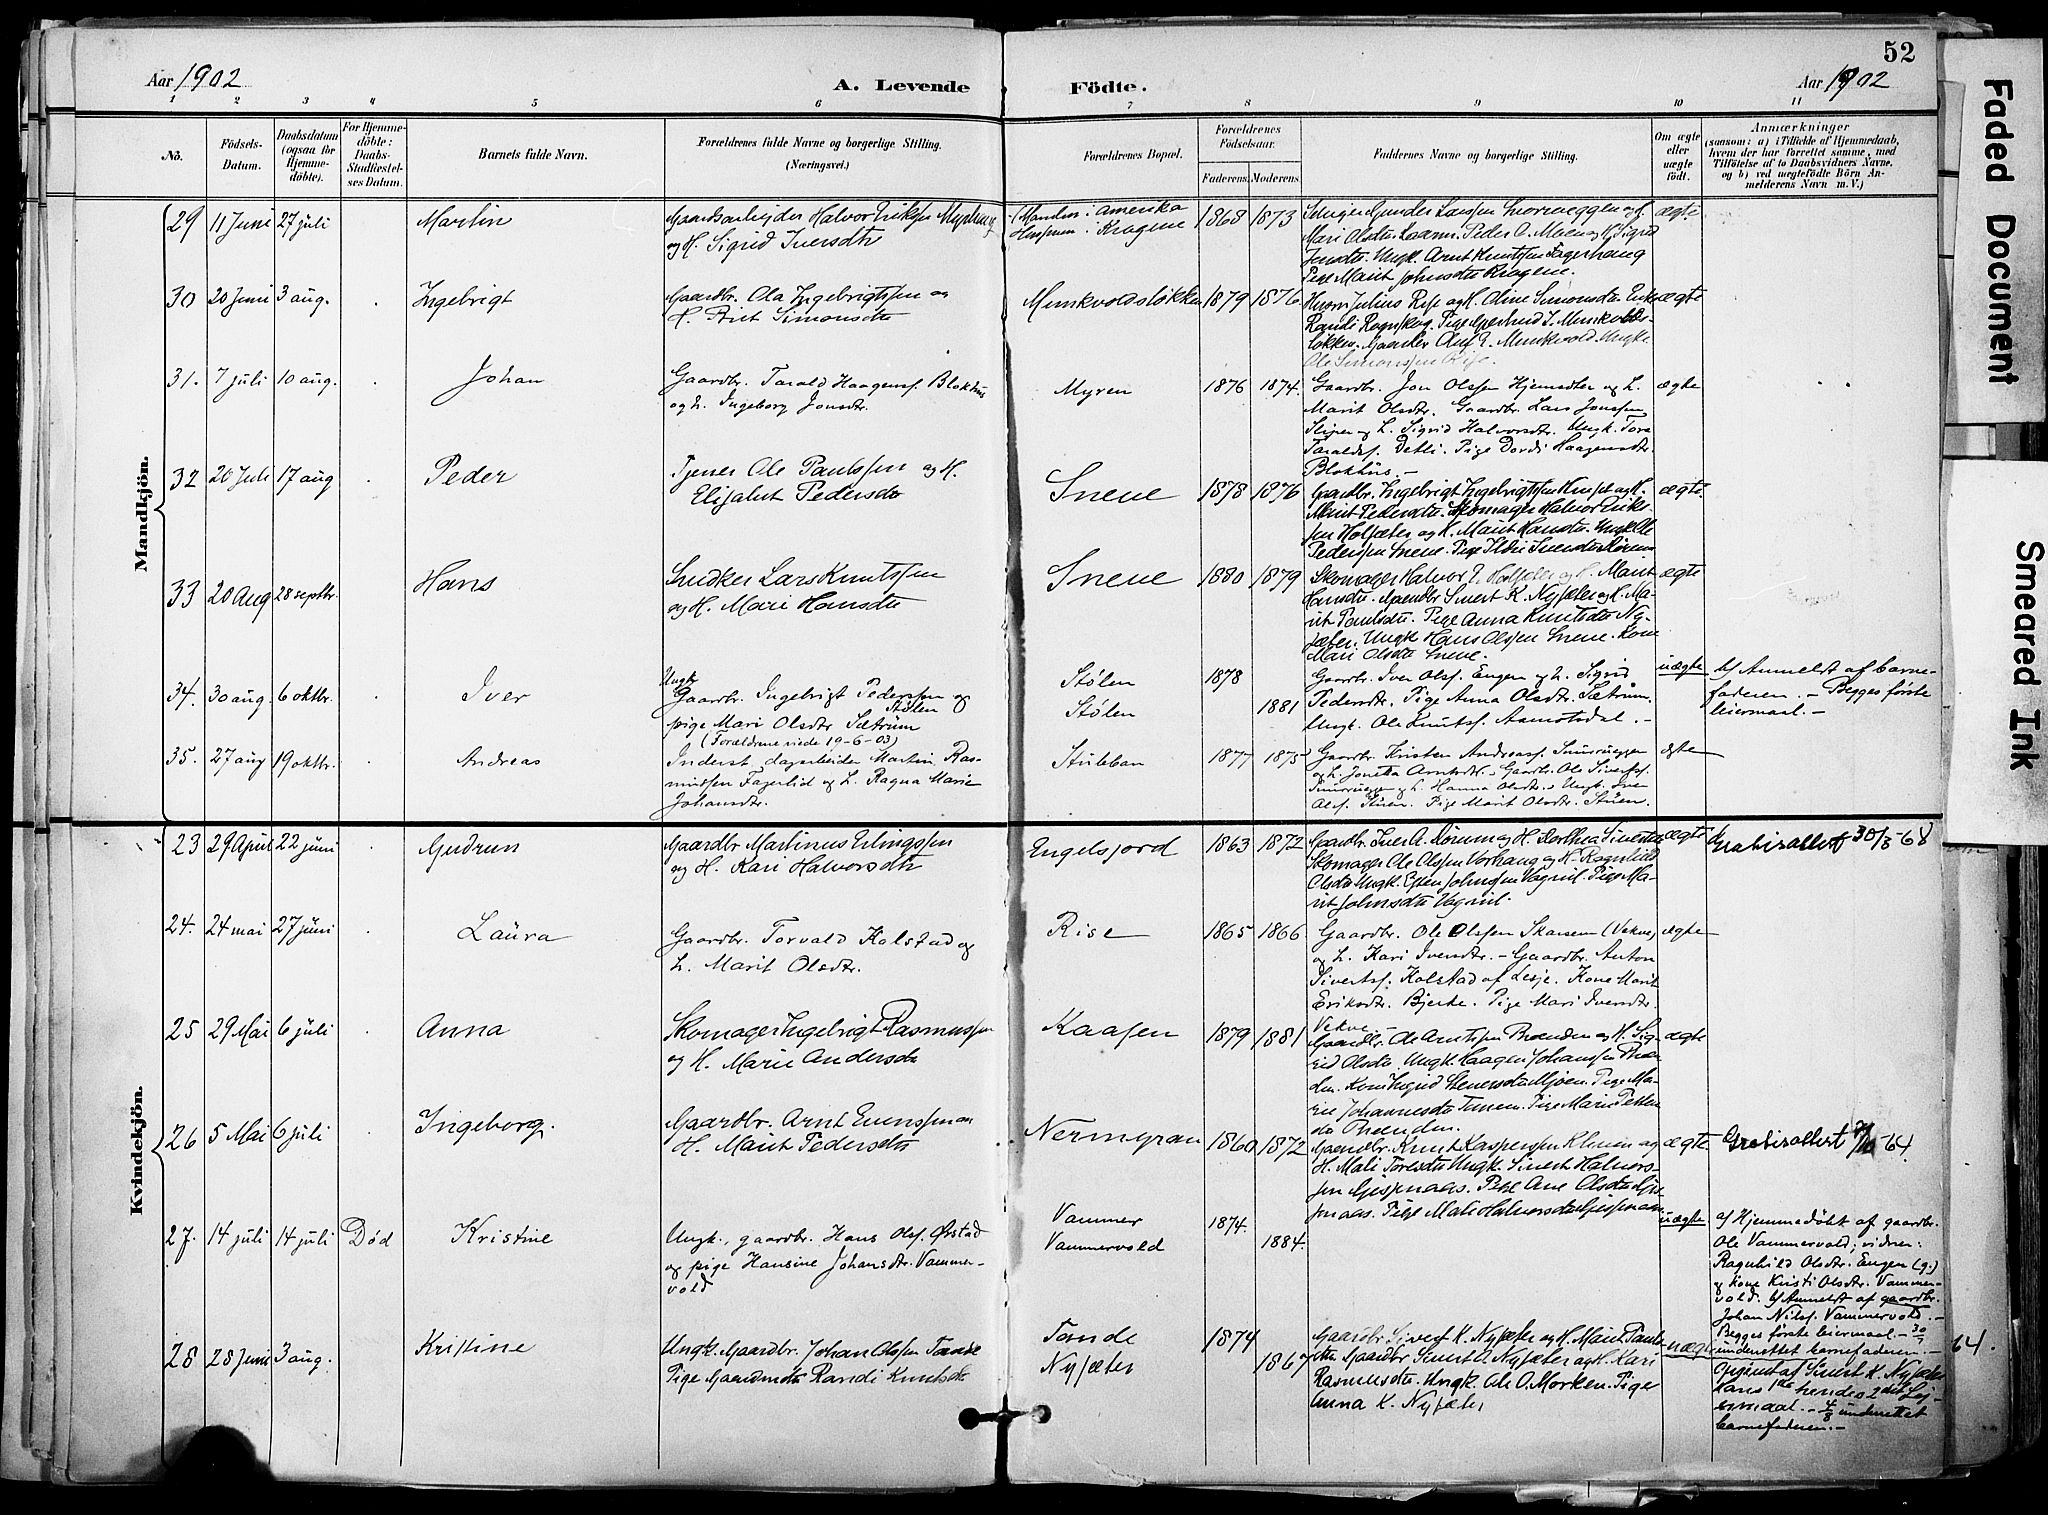 52
Aar 1902
A. Levende
Födte.
Aar 1902
1 2 3 4 5 6 7 8 9 10 11
No.
Födsels-
Datum.
Daabsdatum
(ogsaa for
Hjemme-
döbte).
For Hjemme-
döbte:
Daabs-
Stadfæstel-
ses Datum.
Barnets fulde Navn.
Forældrenes fulde Navne og borgerlige Stilling.
(Næringsvei.)
Forældrenes Bopæl.
Forældrenes
Födselsaar.
Faderens. Moderens.
Faddernes Navne og borgerlige Stilling.
Om ægte
eller
uægte
födt.
Anmærkninger
(saasom: a) i Tilfælde af Hjemmedaab,
hvem der har forrettet samme, med
Tilföielse af to Daabsvidners Navne,
og b) ved uægtefödte Börn An-
melderens Navn m. V.)
Mandkjön.
29 11 Juni 27 juli Martin
Gaardsarbejder Halvor Eriksen
og H. Sigrid Iversdtr
Manden i Amerika
i Kragene
1868 1873
Gunder Larssen og H.
Mari Olsdtr. Peder O. Moen og H. Sigrid
Jensdtr. Ungk. Arnt Knutssen Fagerhaug
Pige Marit Johnsdtr Kragene.
ægte
30 20 Juni 3 aug. Ingebrigt
Gaardbr. Ola Ingebrigtssen og
H. Brit Simonsdtr
Munkvoldsløkken
1879 1876
Julius Rise og H. Oline Simonsdtr
Randi Rognskog. Pige J. Munkvolds-
løkken. Gaardbr Oluf E. Munkvold. Ungk.
Ole Simonssen Rise.
ægte
31. 7 juli 10 aug. Johan
Gaardbr. Tarald Haagenss. Blokhus
og h. Ingeborg Jonsdtr.
Myren
1876 1874.
Gaardbr. Jon Olssen Hjemsdtr og h.
Marit Olsdtr. Gaardbr. Lars Jonssen
Sliper og h. Sigrid Halvorsdtr. Ungk. Tore
Taraldss. Detli. Pige Dordi Haagensdtr.
Blokhus.-
ægte
32 20 Juli 17 aug Peder
Tjener Ole Paulssen og H.
Elisabet Pedersdtr
Snene
1878 1876
Gaardbr. Ingebrigt Ingebrigtssen og H.
Marit Pedersdtr. Skomager Halvor Eriks-
sen Holsæter og H. Marit Hansdtr. Ungk. Ole
Pederssen Snene. Pige Ildri Sivertsdtr
ægte.
33 20 Aug 28 septbr. Hans
Snedker Lars Knutssen
og H. Mari Hansdtr
Snene
1880 1879
Skomager Halvor E. Holsæter og H. Marit
Hansdtr. Gaardbr Sivert K. Nysæter og H. Ma-
rit Paulsdtr. Pige Anna Knutsdtr Ny-
sæter. Ungk Hans Olssen Snene. Kone
Mari Olsdtr Snene.
ægte
34. 30 aug. 6 oktbr. Iver
Ungk.
Gaardbr. Ingebrigt Pederssen Stølen og
pige Mari Olsdtr. Sætrum
(Forældrene viede 19-6-03)
Stølen
Stølen
1878
1881
Gaardbr. Iver Olss. Engen og h. Sigrid
Pedersdtr. Pige Anna Olsdtr. Sætrum.
Ungk. Ole Knutss. Aamotsdal.-
uægte
b) Anmeldt af barne-
faderen. - Begges første
leiermaal. -
35. 27 aug 19 oktbr. Andreas
Inderst, dagarbeider Martin Ras-
mussen Fagerlid og h. Ragna Marie
Johansdtr.
Stubban
1877 1875
Gaardbr. Kristen Andreass. Snurruggen
og h. Jonetta Arntsdtr. Gaardbr. Ole Sivertss.
Snurruggen og h. Hanna Olsdtr. Ungk. Iver
Olss. Stuen. Pige Marit Olsdtr. Stuen.
ægte
Kvindekjön.
23 29 April 22 juni Gudrun
Gaardbr Martinus Erlingssen
og H. Kari Halvorsdtr
Engelsjord
1863 1872
Gaardbr. Iver O. Rømm og H. Dorthea Sivertsdtr
Skomager Ole Olssen Vorhaug og H. Ragnhild
Olsdtr Ungk. Esten Johnssen Vognil. Pige Ma-
rit Johnsdtr Vognil.
ægte
Gratisattest 30/8-68
24. 24 mai 27 juni Laura
Gaardbr. Torvald Kolstad og
h. Marit Olsdtr.
Rise
1865 1866.
Gaardbr. Ole Olssen Skarsem (Vekve)
og h. Kari Iversdtr. - Gaardbr. Anton
Sivertss. Kolstad af Lesje. Kone Marit
Eriksdtr. Bjerke. Pige Mari Iversdtr.
Vekve-
ægte
25 29 Mai 6 juli Anna
Skomager Ingebrigt Rasmussen
og H. Marie Andersdtr
Kaasen
1879 1881
Gaardbr. Ole Arntssen Brænden og H. Sig-
rid Olsdtr. Ungk Haagen Johanssen Bræn-
den. Kone Ingrid Steneersdtr Mjøen. Pige Ma-
rie Johannesdtr. Pige Marie
Brænden.
ægte
26 5 Mai 6 juli Ingeborg.
Gaardbr. Arnt Evenssen og
H. Marit Pedersdtr
Nermyran
1860 1872
Gaardbr. Knut Kasperssen og
H. Mali Toresdtr Ungk. Sivert Halvors-
sen Gisnaas. Pige Ane Olsdtr Gis-
naas. Pige Mali Halvorsdtr Gisnaas
ægte.
Gratisattest -64.
27. 14 juli 14 juli Død Kristine
Ungk., gaardbr. Hans Olss. Ørstad
og pige Hansine Johansdtr. Vammer-
vold
Vammer
Vammervold
1874.
1884.
uægte
a) Hjemmedøbt af gaardbr.
Ole Vammervold; vidner:
Ragnhild Olsdtr. Engen (g.)
og kone Kristi Olsdtr. Vammer-
vold. b) Anmeldt af gaardbr.
Johan Nilss. Vammervold.-
Begges første leiermaal.- 30/7
underrettet barnefaderen.-
28 28 Juni 3 aug. Kristine
Ungk. Gaardbr. Johan Olssen Tande
Pige Randi Knutsdtr
Tande
Nysæter
1874
1867
Gaardbr. Sivert K. Nysæter og H. Marit Pauls-
dtr. Gaardbr Sivert O. Nysæter og H. Kari
Rasmusdtr. Ungk. Ole O. Morken. Pige
Anna K. Nysæter
uægte
Opgivet af Sivert K. Nysæter
hans 1ste hendes 2det Lej-
ermaal. - 4/8 underrettet
barnefaderen.-
64.
Faded Document
Smeared Ink